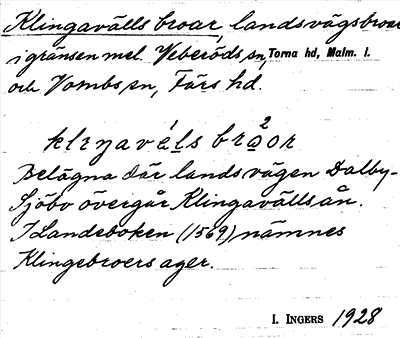 Klingavälls broar, landsvägsbroar
i gränsen mel. Veberöds sn, Torna hd, Malm. l.
och Vombs sn, Färs hd.
klıŋavɛ́l̥s brǻ²or
Belägna där landsvägen Dalby-
Sjöbo övergår Klingavällsån.
I Landeboken (1569) nämnes
Klingebroers ager.
I. INGERS 1928